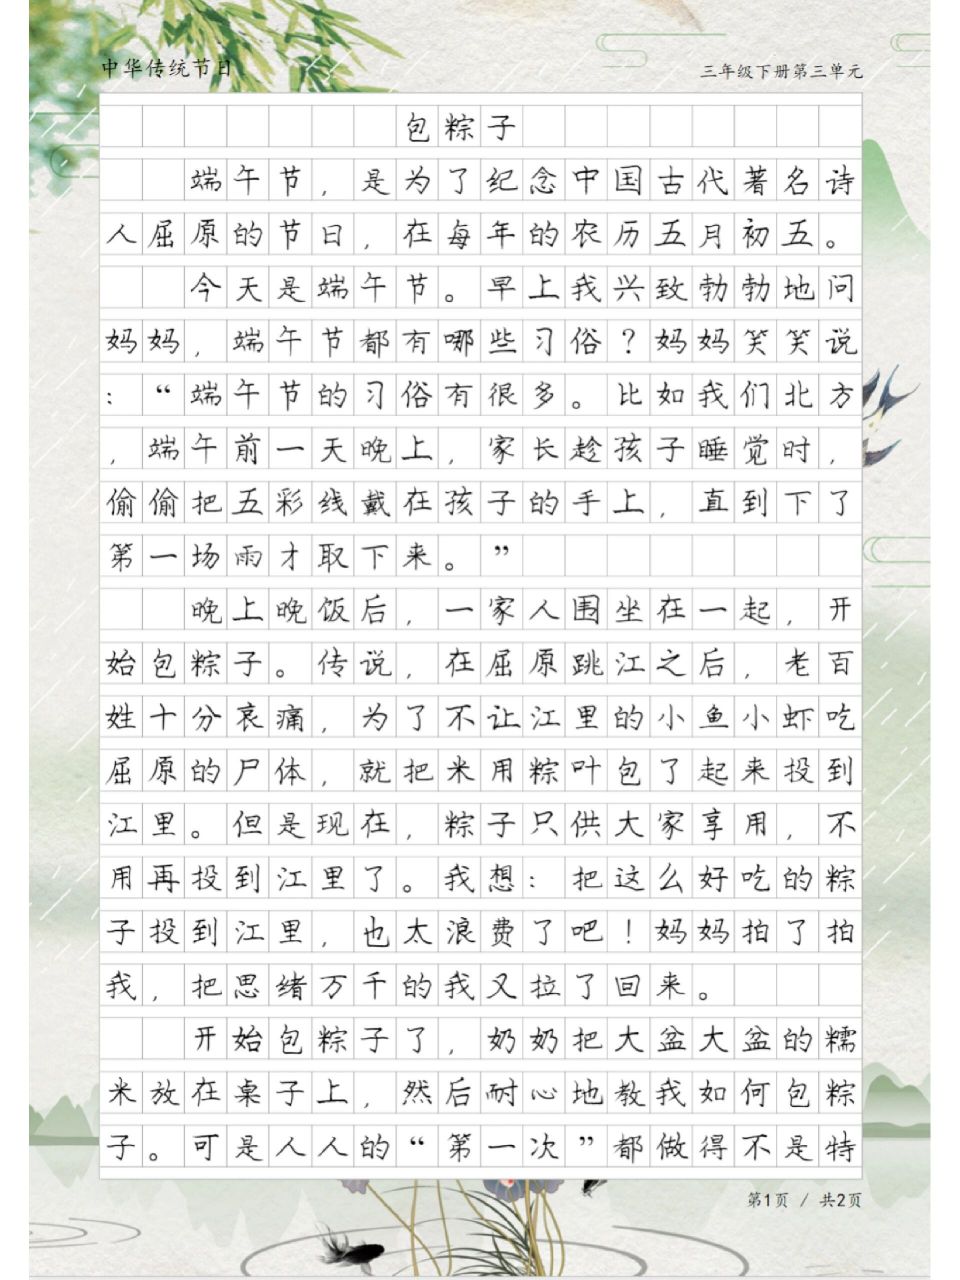 中华传统节日
三年级下册第三单元
包粽子
端午节，是为了纪念中国古代著名诗
人屈原的节日，在每年的农历五月初五。
今天是端午节。早上我兴致勃勃地问
妈妈，端午节都有哪些习俗？妈妈笑笑说
：“端午节的习俗有很多。比如我们北方
，端午前一天晚上，家长趁孩子睡觉时，
偷偷把五彩线戴在孩子的手上，直到下了
第一场雨才取下来。”
晚上晚饭后，一家人围坐在一起，开
始包粽子。传说，在屈原跳江之后，老百
姓十分哀痛，为了不让江里的小鱼小虾吃
屈原的尸体，就把米用粽叶包了起来投到
江里。但是现在，粽子只供大家享用，不
用再投到江里了。我想：把这么好吃的粽
子投到江里，也太浪费了吧！妈妈拍了拍
我，把思绪万千的我又拉了回来。
开始包粽子了，奶奶把大盆大盆的糯
米放在桌子上，然后耐心地教我如何包粽
子。可是人人的“第一次”都做得不是特
第1页 / 共2页